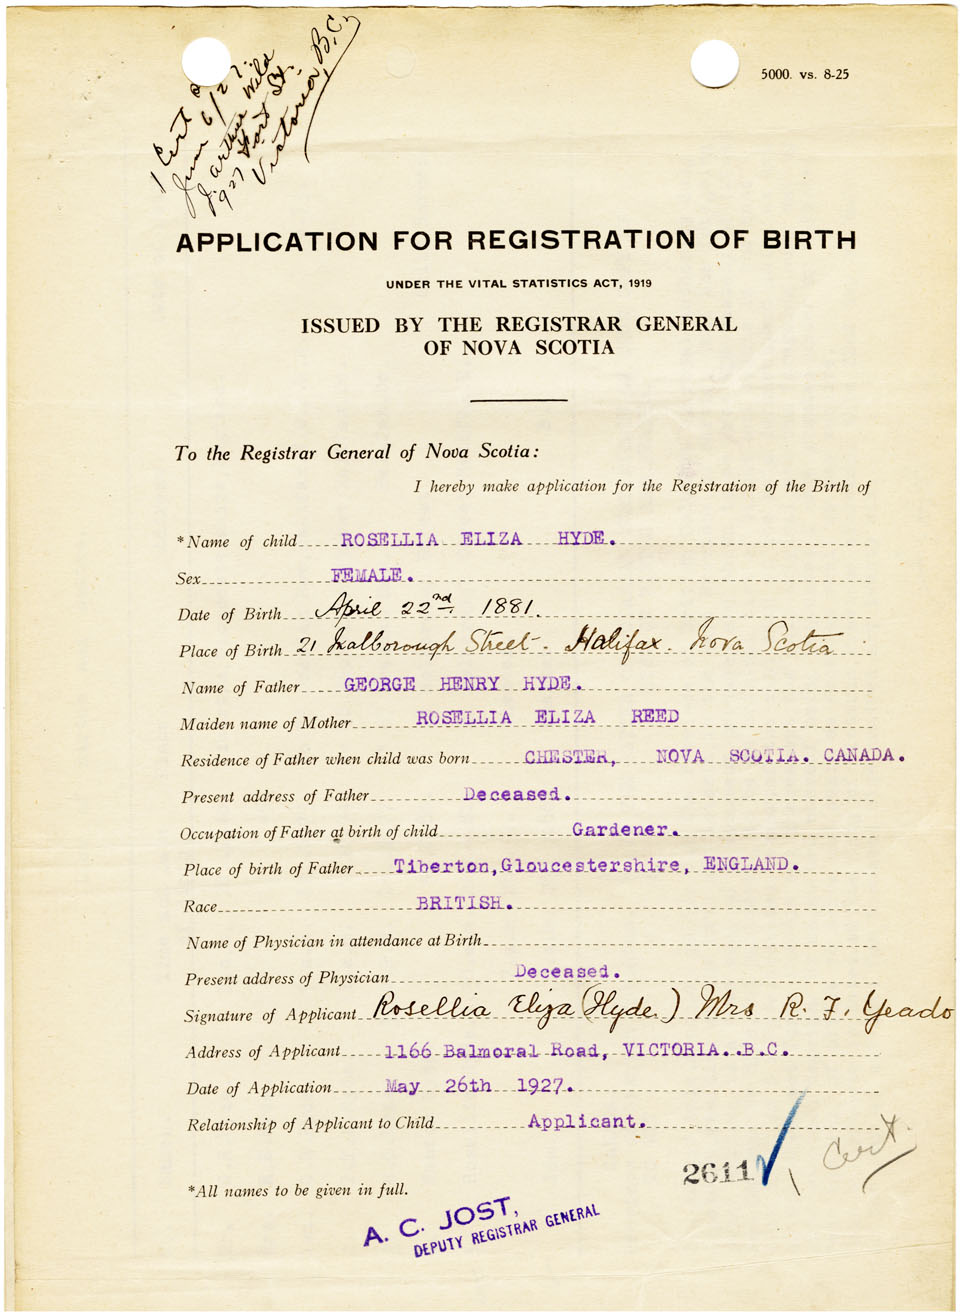 1 Cert
June 6/27.
J. Arthur Wild
927 Fort St.
Victoria, B.C.
5000. vs. 8-25
APPLICATION FOR REGISTRATION OF BIRTH
UNDER THE VITAL STATISTICS ACT, 1919
ISSUED BY THE REGISTRAR GENERAL
OF NOVA SCOTIA
To the Registrar General of Nova Scotia:
I hereby make application for the Registration of the Birth of
*Name of child ROSELLIA ELIZA HYDE.
Sex FEMALE.
Date of Birth April 22nd. 1881.
Place of Birth 21 Malborough Street - Halifax. Nova Scotia
Name of Father GEORGE HENRY HYDE.
Maiden name of Mother ROSELLIA ELIZA REED
Residence of Father when child was born CHESTER, NOVA SCOTIA. CANADA.
Present address of Father Deceased.
Occupation of Father at birth of child Gardener.
Place of birth of Father Tiberton,Gloucestershire, ENGLAND.
Race BRITISH.
Name of Physician in attendance at Birth
Present address of Physician Deceased.
Signature of Applicant Rosellia Eliza (Hyde.) Mrs R. F. Yeado
Address of Applicant 1166 Balmoral Road, VICTORIA..B.C.
Date of Application May 26th 1927.
Relationship of Applicant to Child Applicant.
2611
1 Cert.
*All names to be given in full.
A. C. JOST,
DEPUTY REGISTRAR GENERAL